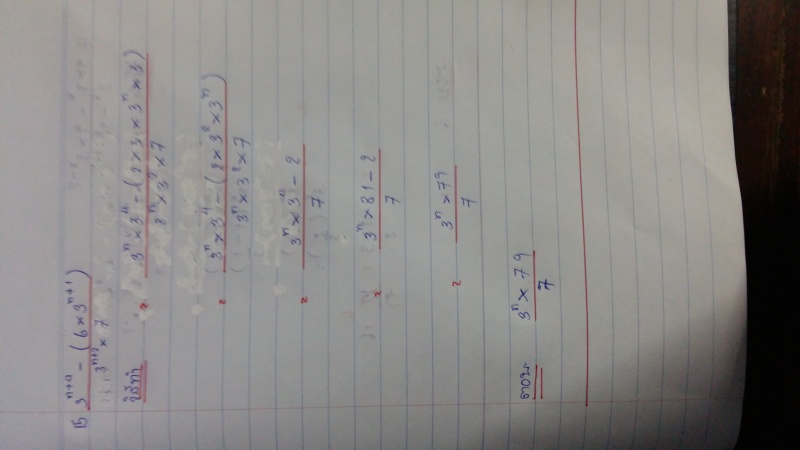 15 3ⁿ⁺⁴ - (6 × 3ⁿ⁺¹)
3ⁿ⁺² × 7
วิธีทำ = 3ⁿ × 3⁴ - (2 × 3 × 3ⁿ × 3)
3ⁿ × 3² × 7
= 3ⁿ × 3⁴ - (2 × 3² × 3ⁿ)
3ⁿ × 3² × 7
= 3ⁿ × 3⁴ - 2
7
= 3ⁿ × 81 - 2
7
= 3ⁿ × 79
7
ตอบ 3ⁿ × 79
7